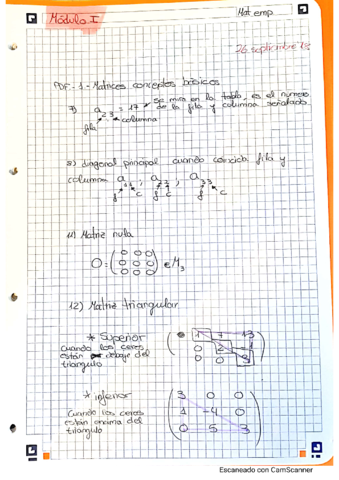 Módulo I
Mat emp
26 septiembre
PDF - 1 - Matrices conceptos básicos
7) a₂₃ = 17 → se mira en la tabla, es el número
de la fila y columna señalado
fila
columna
8) diagonal principal cuando coincida fila y
columna a₁₁ ; a₂₂ ; a₃₃
f c f c f c
11) Matriz nula
O = ( 0 0 0
0 0 0
0 0 0 ) ∈ M₃
12) Matriz triangular
* Superior
cuando los ceros
están debajo del
triangulo
1 7 13
0 2
0 0
* inferior
cuando los ceros
están encima del
triangulo
3 0 0
1 -4 0
0 5 3
Escaneado con CamScanner